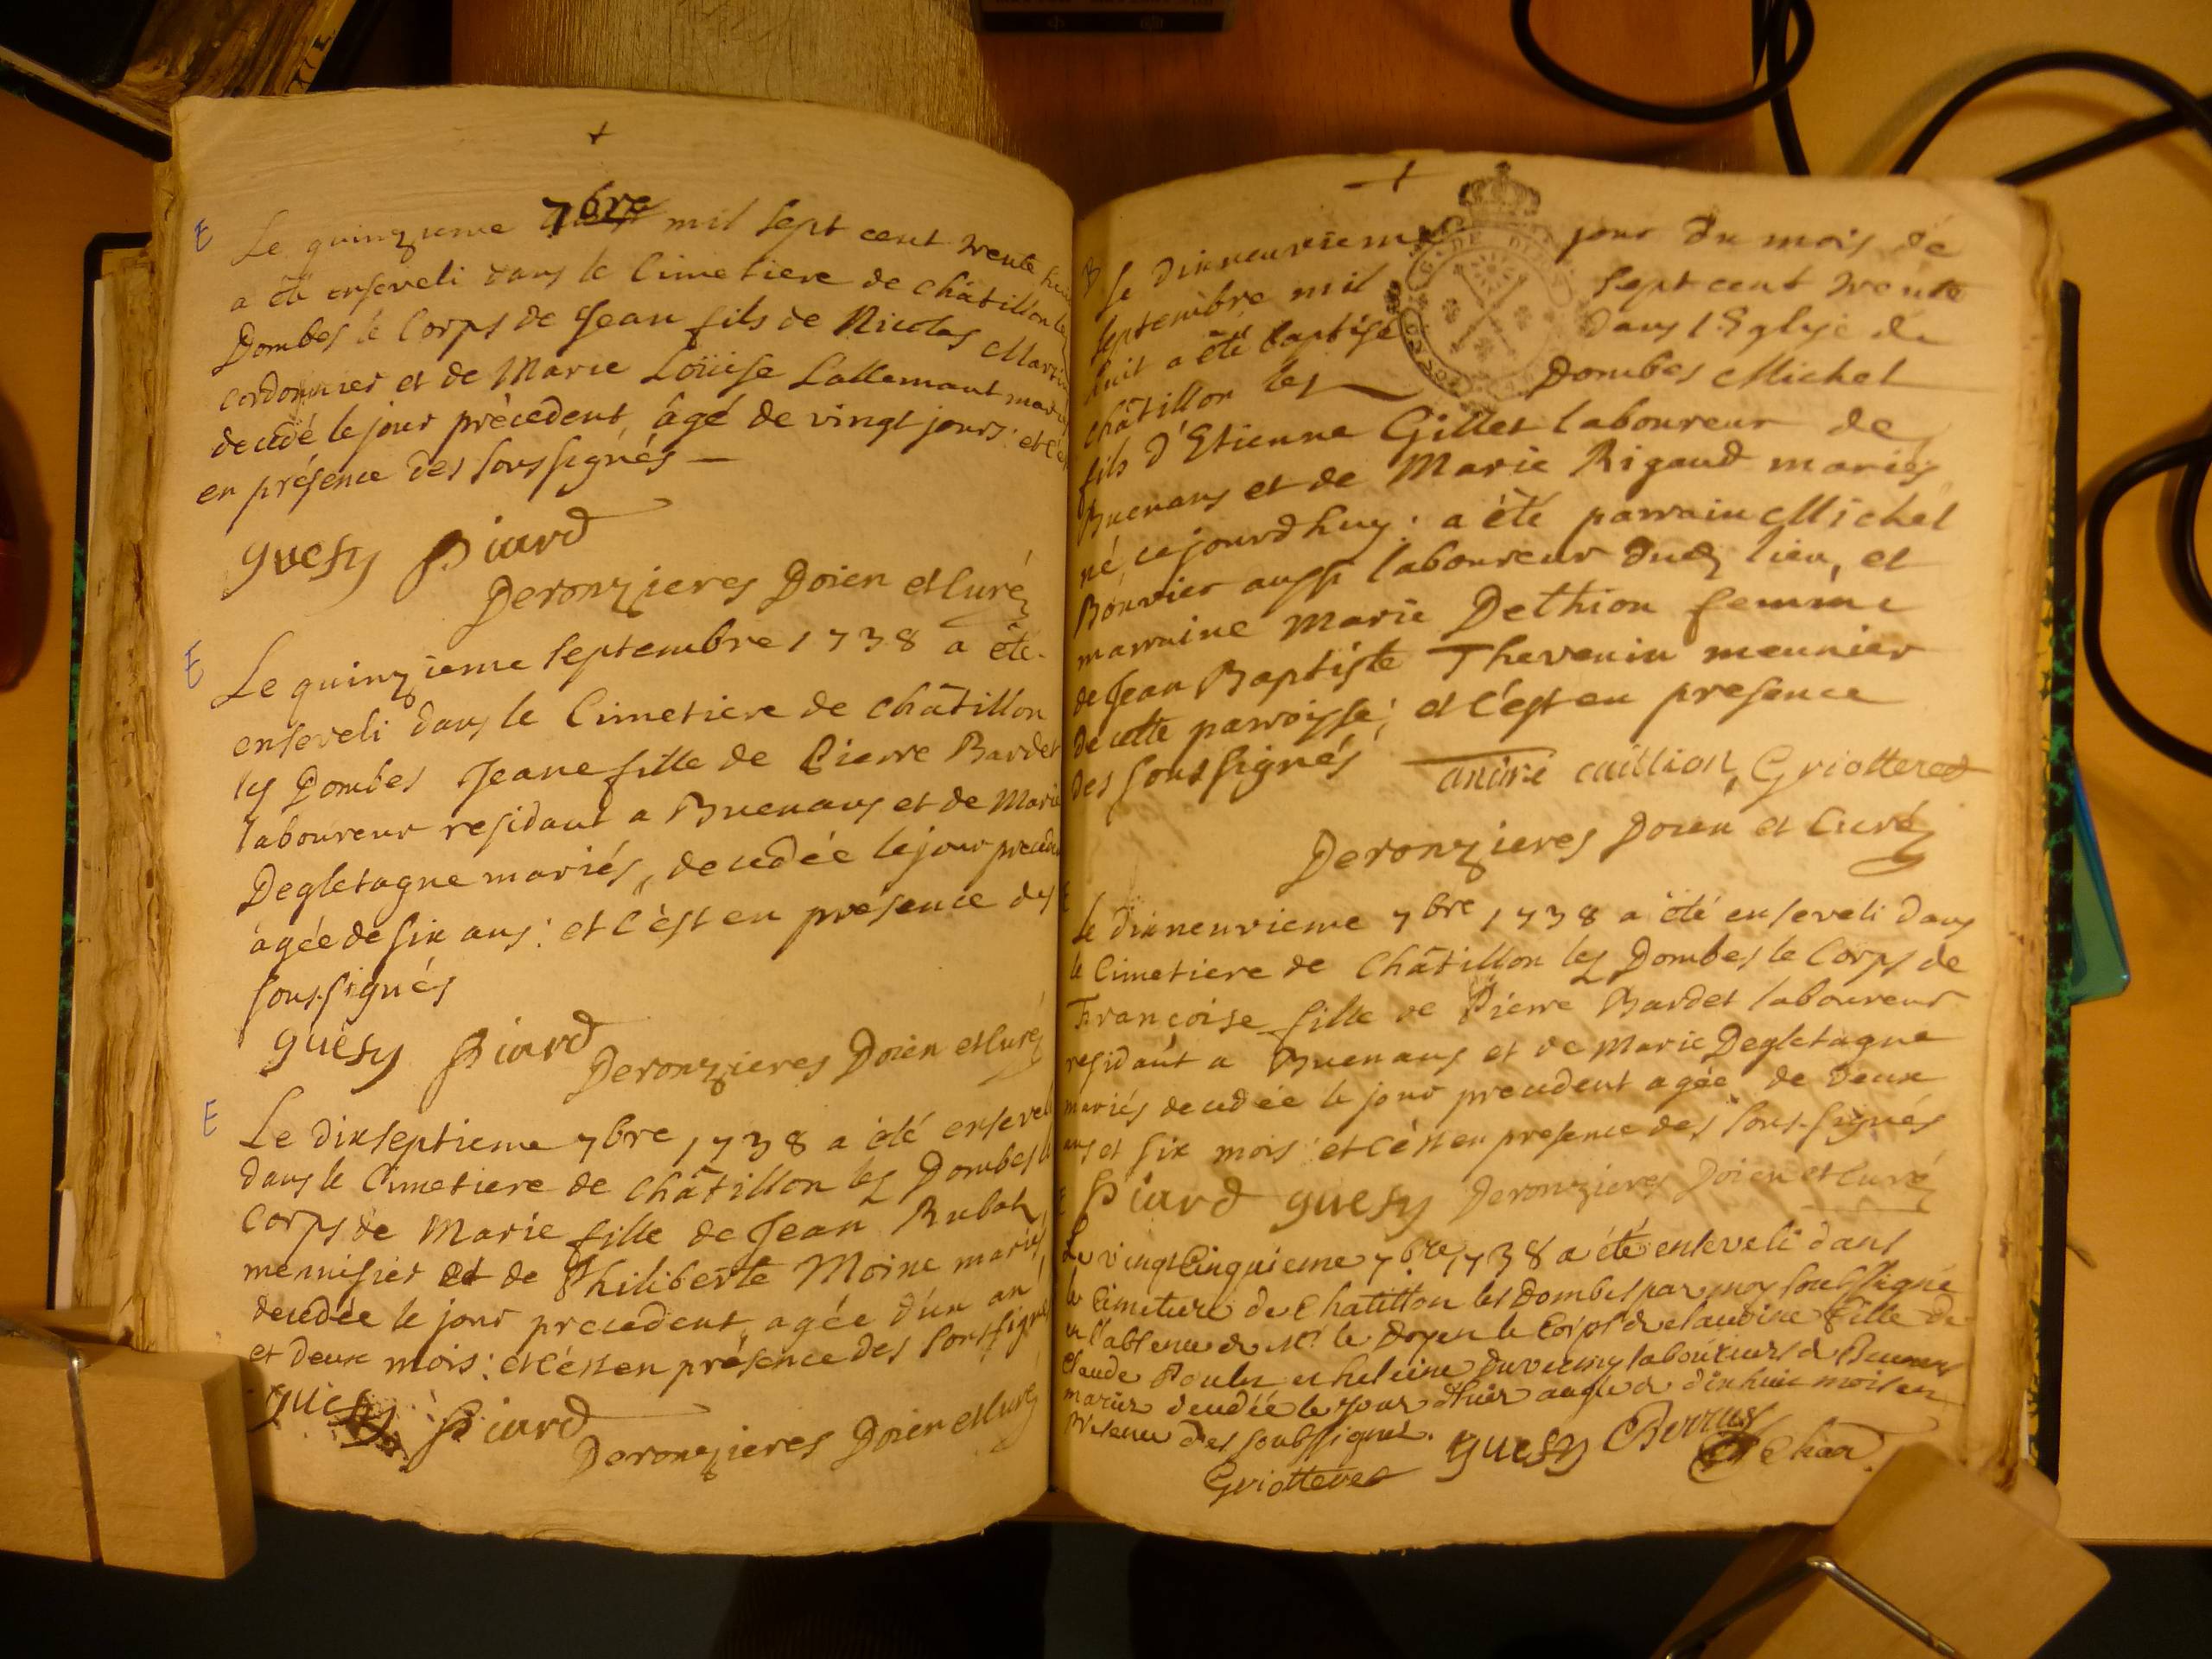 E
Le quinzieme 7bre mil sept cent trente
a été enseveli dans le Cimetiere de châtillon les
Dombes le Corps de Jean fils de Nicolas Martin
cordonnier et de Marie Loüise Lallemant mariés
decedé le jour précedent, âgé de vingt jours: et c'est
en présence des soussignés —
guesy Piard
Deronzieres Doien et Curé
E
Le quinzieme septembre 1738 a été
enseveli dans le Cimetiere de châtillon
les Dombes Jeane fille de Pierre Bardet
laboureur residant a Buenans et de Marie
Degletagne mariés, decedée le jour precedent
âgée de six ans: et c'est en présence des
soussignés
guesy Piard Deronzieres Doien et Curé
E
Le dixseptieme 7bre 1738 a été enseveli
dans le Cimetiere de châtillon les Dombes le
corps de Marie fille de Jean Rubat
menuisier et de Philiberte Moine mariés
decedée le jour precedent, agée d'un an
et deux mois: et c'est en présence des soussignés
guesy Piard
Deronzieres Doien et Curé
B
Le dixneuvieme jour du mois de
septembre mil sept cent trente
huit a été baptisé dans l'Eglise de
châtillon les Dombes Michel
fils d'Etienne Gillet laboureur de
Buenans et de Marie Rigaud mariés
né cejourdhuy: a été parrain Michel
Bouvier aussi laboureur dud lieu, et
marraine Marie Dethion femme
de Jean Baptiste Thevenin meunier
de cette parroisse; et c'est en presence
des soussignés andré caillion, Griotteret
Deronzieres Doien et Curé
E
Le dixneuvieme 7bre 1738 a été enseveli dans
le Cimetiere de Châtillon les Dombes le Corps de
Françoise fille de Pierre Bardet laboureur
residant a Buenans et de Marie Degletagne
mariés decedée le jour precedent agée de deux
ans et six mois: et c'est en presence des soussignés
E Piard guesy Deronzieres Doien et Curé
Le vingt Cinquieme 7bre 1738 a été enseveli dans
le Cimetiere de Chatillon les Dombes par moy soussigné
en l'absence de Mr. le Doyen le Corps de claudine fille de
Claude et heleine laboureurs de Buenans
mariés decedée le jour d'hier aagée de dix huit mois en
presence des soubsignés. guesy
Griotteret